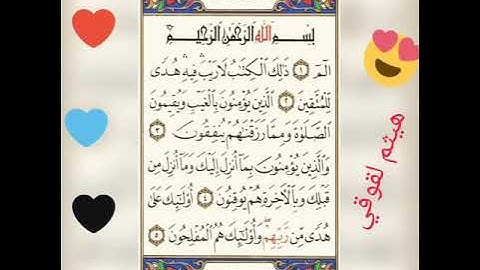 بِسْمِ ٱللَّهِ ٱلرَّحْمَٰنِ ٱلرَّحِيمِ
الٓمٓ ١ ذَٰلِكَ ٱلْكِتَٰبُ لَا رَيْبَ ۛ فِيهِ ۛ هُدًى
لِّلْمُتَّقِينَ ٢ ٱلَّذِينَ يُؤْمِنُونَ بِٱلْغَيْبِ وَيُقِيمُونَ
ٱلصَّلَوٰةَ وَمِمَّا رَزَقْنَٰهُمْ يُنفِقُونَ ٣
وَٱلَّذِينَ يُؤْمِنُونَ بِمَآ أُنزِلَ إِلَيْكَ وَمَآ أُنزِلَ مِن
قَبْلِكَ وَبِٱلْأَخِرَةِ هُمْ يُوقِنُونَ ٤ أُو۟لَٰٓئِكَ عَلَىٰ
هُدًى مِّن رَّبِّهِمْ ۖ وَأُو۟لَٰٓئِكَ هُمُ ٱلْمُفْلِحُونَ ٥
هيثم لقوقي